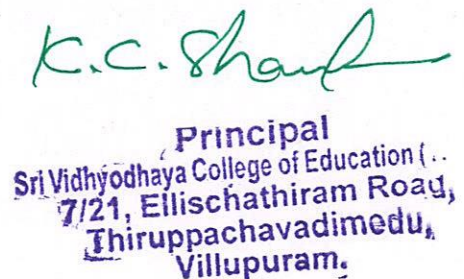 K.C.
Principal
Sri Vidhyodhaya College of Education (..
7/21, Ellischathiram Road,
Thiruppachavadimedu,
Villupuram.